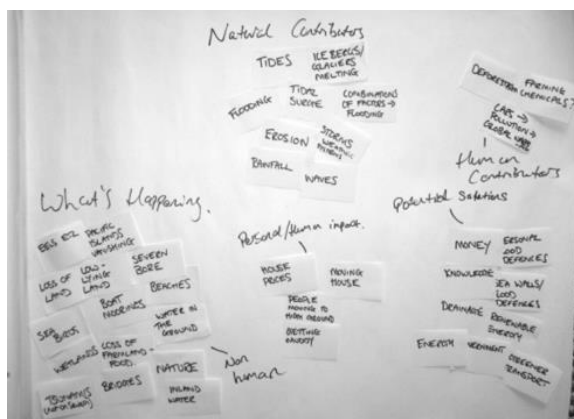 Natural Contributors
TIDES
ICEBERGS/
GLACIERS
MELTING
FLOODING
TIDAL
SURGE
COMBINATIONS
OF FACTORS →
FLOODING
EROSION
STORMS
WEATHER
RAINFALL
WAVES
DEFORESTATION
FARMING
CHEMICALS?
CARS →
POLLUTION →
GLOBAL
Human
Contributors
What's Happening.
PACIFIC
ISLANDS
VANISHING
SEVERN
BORE
LOSS OF
LAND
LOW-
LYING
LAND
BOAT
MOORINGS
BEACHES
SEA
BIRDS
WATER IN
THE
GROUND
WETLANDS
LOSS OF
FARMLAND -
FOOD.
NATURE
TSUNAMIS
BRIDGES
INLAND
WATER
Non
human
Personal/Human impact.
HOUSE
PRICES
MOVING
HOUSE
PEOPLE
MOVING TO
HIGH GROUND
GETTING
Potential Solutions
MONEY
ERSONAL
LOOD
DEFENCES
KNOWLEDGE
SEA WALLS/
LOOD
DEFENCES
DRAINAGE
RENEWABLE
ENERGY
ENERGY
VERNMENT
TRANSPORT